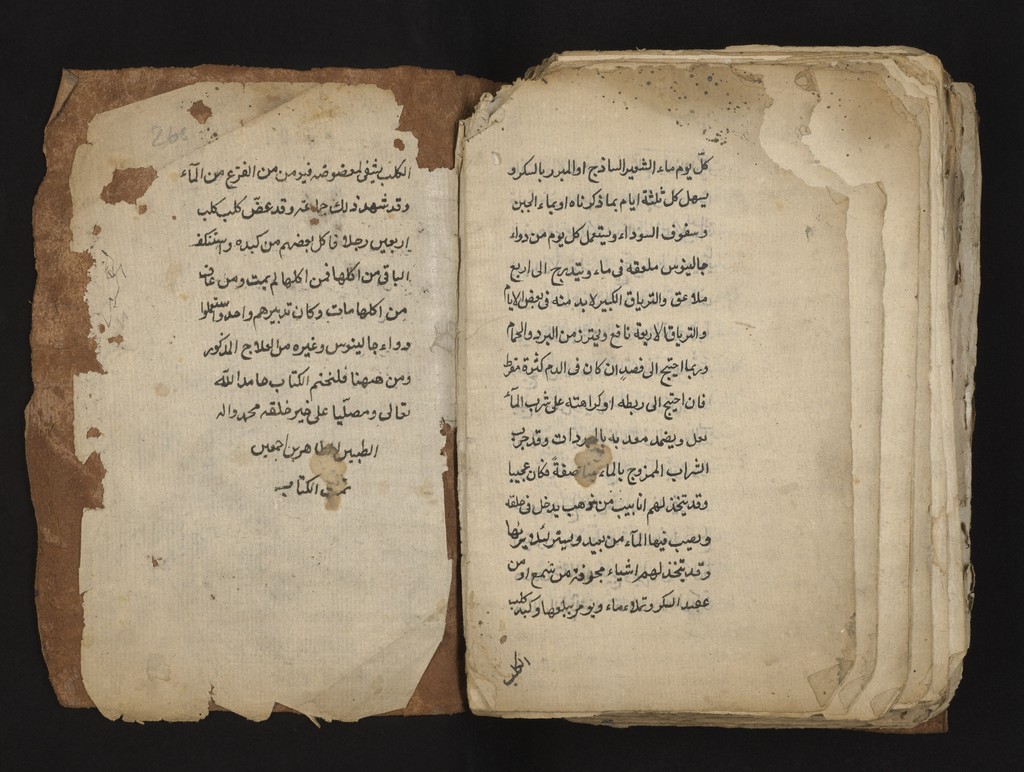 كل يوم ماء الشعير الساذج او المبرر بالسكر و
يسهل كل ثلثة ايام بما ذكرناه او بماء الجبن
وسفوف السوداء ويستعمل كل يوم من دواء
جالينوس ملعقه فى ماء ويتدرج الى اربع
ملاعق والترياق الكبير لا بد منه فى بعض الايام
والترياق الاربعة نافع ويحترز من البرد والحمام
وربما احتيج الى فصد ان كان فى الدم كثرة مفرط
فان احتيج الى ربطه او كراهته على شرب المآء
فعل ويضمد معدته بالمبردات وقد جرب
الشراب الممزوج بالماء مناصفةً فكان عجيبا
وقد يتخذ لهم انابيب من ذهب يدخل فى حلقه
ويصب فيها المآء من بعيد ويستر لئلا يراها
وقد يتخذ لهم اشياء مجوفة من شمع او من
عقيد السكر وتملاء ماء ويومر ببلعها وكبد كلب
الكلب
266
الكلب يشفى لمعضوضه فيومن من الفزع من المآء
وقد شهد ذلك جماعه وقد عضّ كلب كلب
اربعين رجلا فاكل بعضهم من كبده واستنكف
الباقى من اكلها فمن اكلها لم يمت ومن عاف
من اكلها مات وكان تدبيرهم واحد واستعملوا
دواء جالينوس وغيره من العلاج المذكور
ومن ههنا فلنختم الكتاب حامدا لله
تعالى ومصلّيا على خير خلقه محمد واله
الطيبين الطاهرين اجمعين
تمت الكتاب